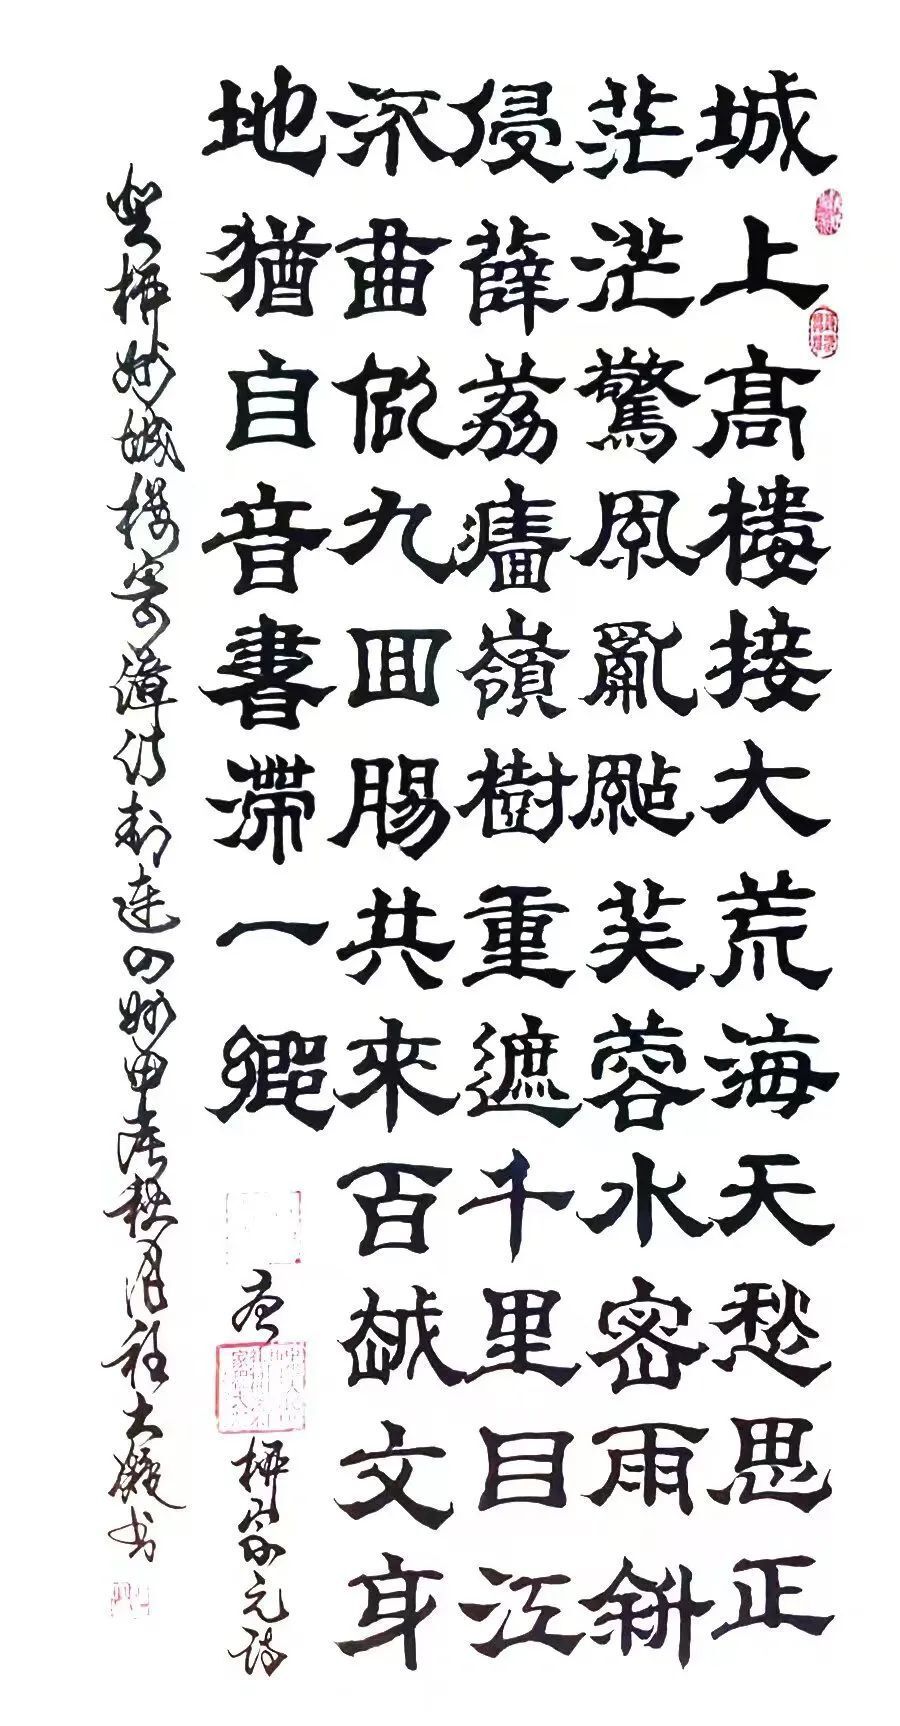 城上高樓接大荒海天愁思正
茫茫驚風亂颭芙蓉水密雨斜
侵薜荔牆嶺樹重遮千里目江
流曲似九回腸共來百越文身
地猶自音書滯一鄉
唐 柳宗元詩
登柳州城楼寄漳汀封连四州甲辰秋月 书